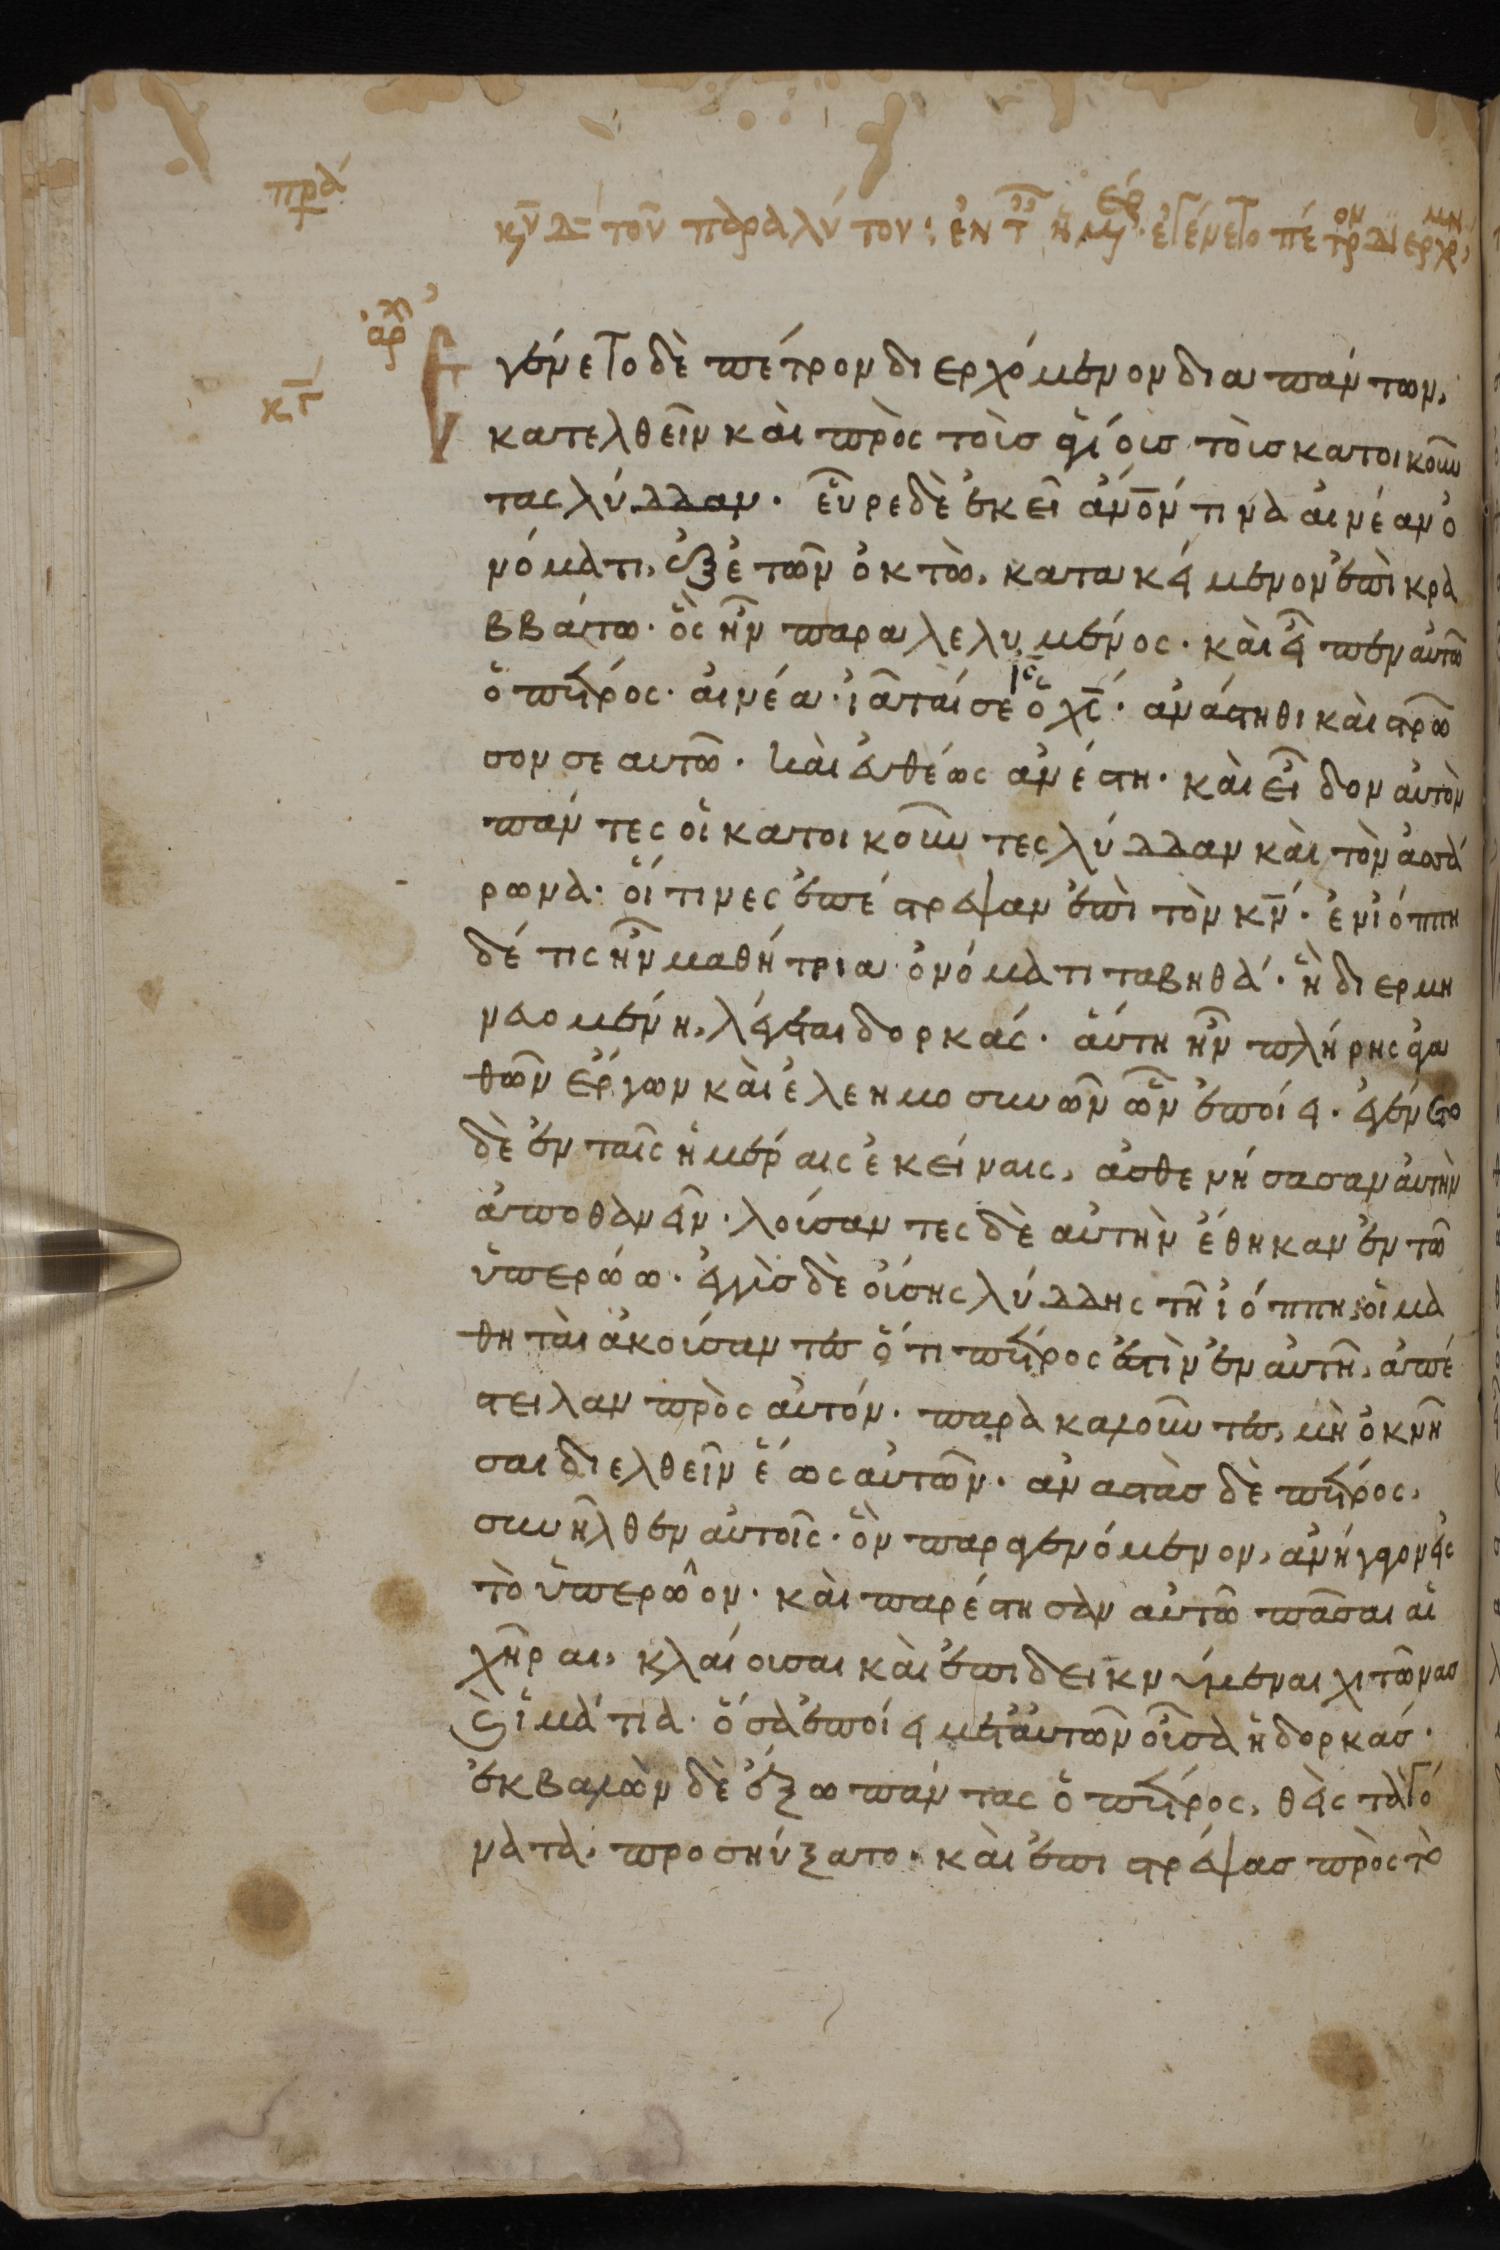 πρά
κυ Δ τοῦ παραλύτου: ἐν τ ἡμ ἐκ. ἐγένετο πέτρον διερχ μν
ἀρχ
κγ
Ἐγένετο δὲ πέτρον διερχόμενον δια πάντων,
κατελθεῖν καὶ πρὸς τοὶσ ἁγίοισ τοὶσ κατοικοῦν
τας λύδδαν. εὗρε δὲ ἐκεῖ ἀνόν τινὰ αἰνέαν ὀ
νόματι, ἐξ ἐτῶν ὀκτὼ, κατακείμενον ἐπὶ κρα
ββάτω. ὃς ἦν παραλελυμένος. καὶ εἶπεν αὐτῶ
ὁ πέτρος. αἰνέα. ἰᾶταί σε ις ὁ χς. ἀνάστηθι καὶ στρῶ
σον σεαυτῶ. καὶ εὐθέως ἀνέστη. καὶ εἶδον αὐτὸν
πάντες οἱ κατοικοῦντες λύδδαν καὶ τὸν ἀσσά
ρωνα. οἵτινες ἐπέστρεψαν ἐπὶ τὸν κν. ἐν ἰόππη
δέ τις ἦν μαθήτρια ὀνόματι ταβηθά. ἣ διερμη
νευομένη, λέγεται δορκάς. αὕτη ἦν πλήρης ἀγα
θῶν ἔργων καὶ ἐλεημοσυνῶν ὧν ἐποίει. ἐγένετο
δὲ ἐν ταῖς ἡμέραις ἐκείναις, ἀσθενήσασαν αὐτὴν
ἀποθανεῖν. λούσαντες δὲ αὐτὴν ἔθηκαν ἐν τῶ
ὑπερώω. ἐγγὺσ δὲ οὔσης λύδδης τῆ ἰόππη, οἱ μα
θηταὶ ἀκούσαντες ὅτι πέτρος ἐστὶν ἐν αὐτῆ, ἀπέ
στειλαν πρὸς αὐτόν. παρὰκαλοῦντες, μὴ ὀκνῆ
σαι διελθεῖν ἕως αὐτῶν. ἀναστὰσ δὲ πέτρος,
συνῆλθεν αὐτοῖς. ὃν παραγενόμενον, ἀνήγαγον εἰς
τὸ ὑπερῶον. καὶ παρέστησαν αὐτῶ πᾶσαι αἱ
χῆραι, κλαίουσαι καὶ ἐπιδεικνύμεναι χιτῶνασ
καὶ ἱμάτια. ὅσα ἐποίει μετ' αὐτῶν οὖσα ἡ δορκάσ.
ἐκβαλὼν δὲ ἔξω πάντας ὁ πέτρος, θεὶς τὰ γό
νατα, προσηύξατο. καὶ ἐπιστρέψασ πρὸς τὸ